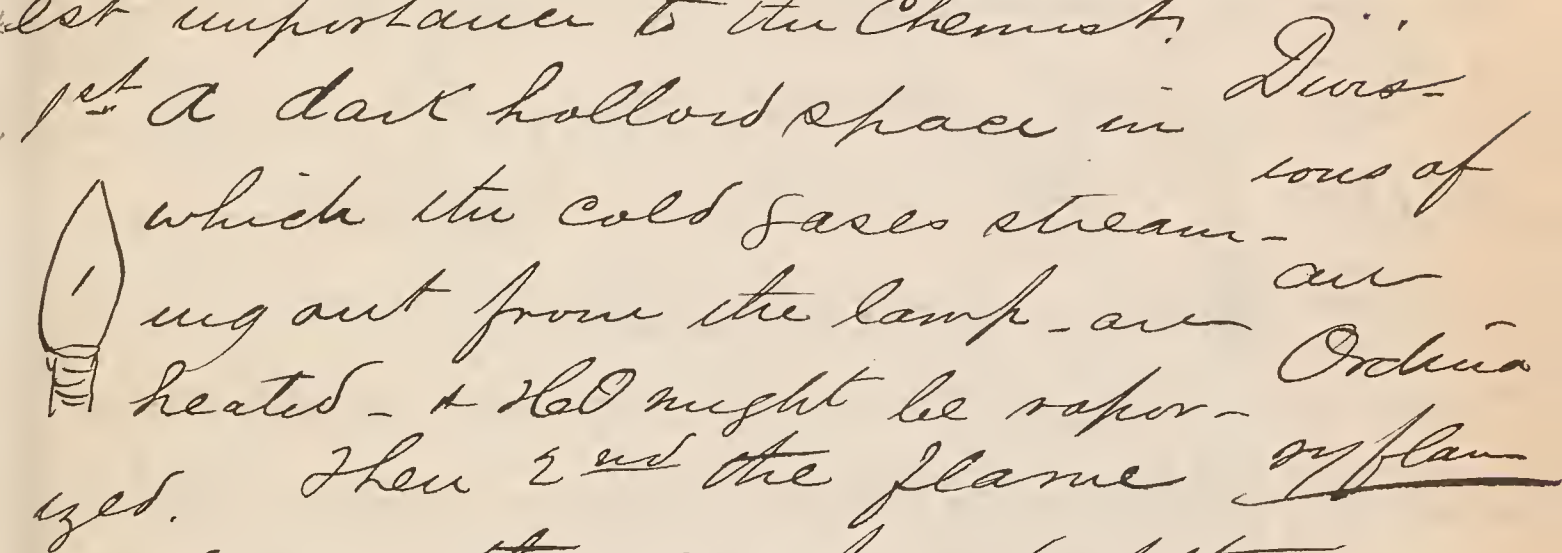 est importance to the Chemist.
1st A dark hollow space in
which the cold gases stream-
ing out from the lamp - are
heated - & H2O might be vapor-
ized. Then 2nd the flame
Divis-
ions of
an
Ordina
ry flame